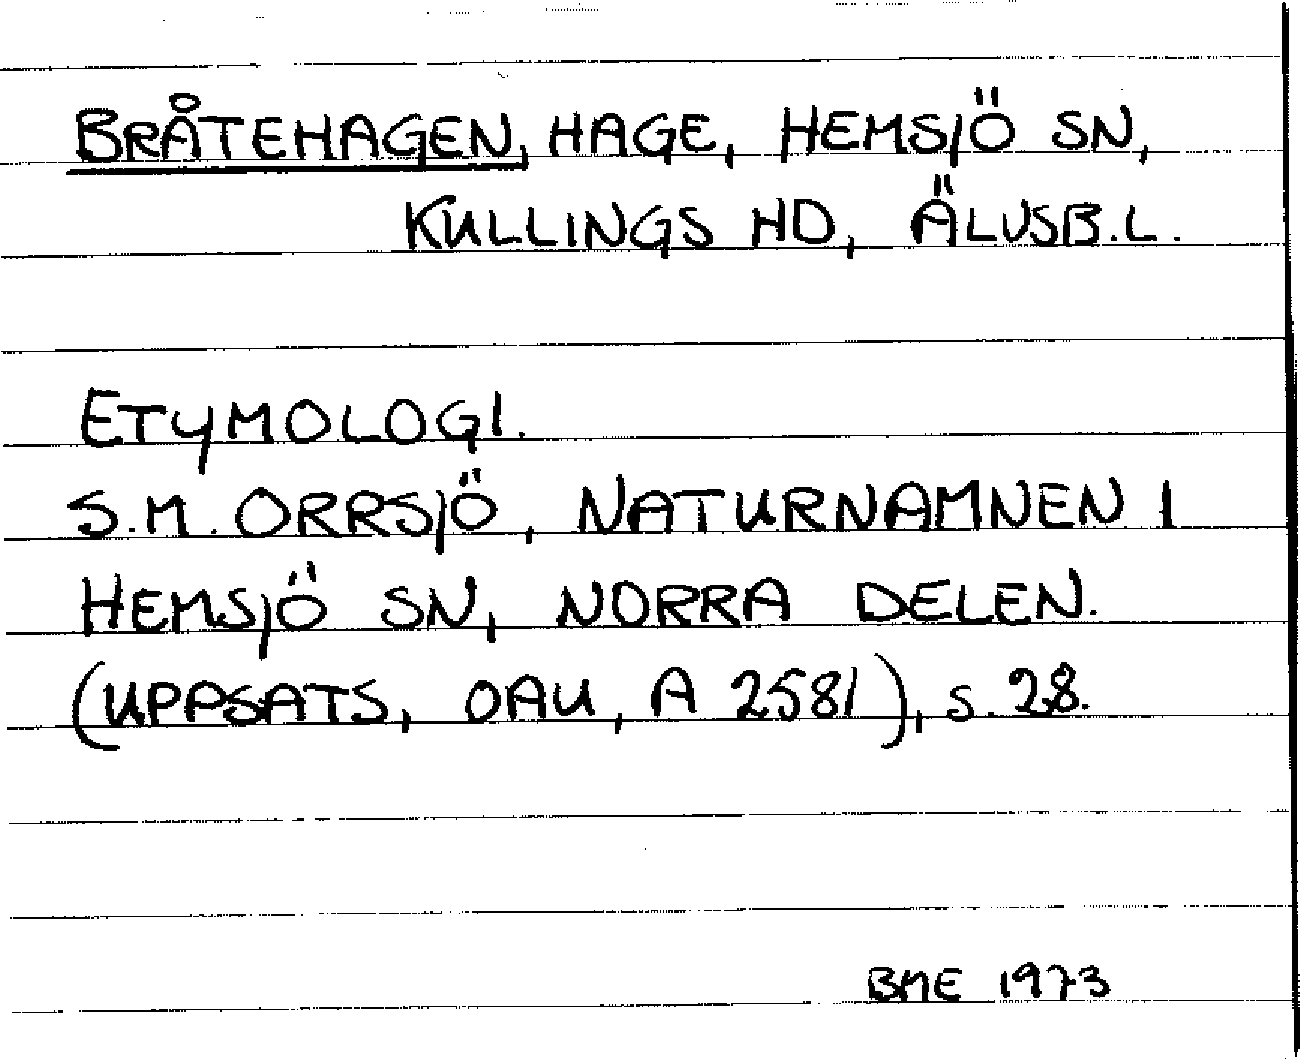 BRÅTEHAGEN, HAGE, HEMSJÖ SN,
KULLINGS HD, ÄLVSB.L.
ETYMOLOGI.
S.M. ORRSJÖ, NATURNAMNEN I
HEMSJÖ SN, NORRA DELEN.
(UPPSATS, OAU, A 2581), S. 28.
BME 1973